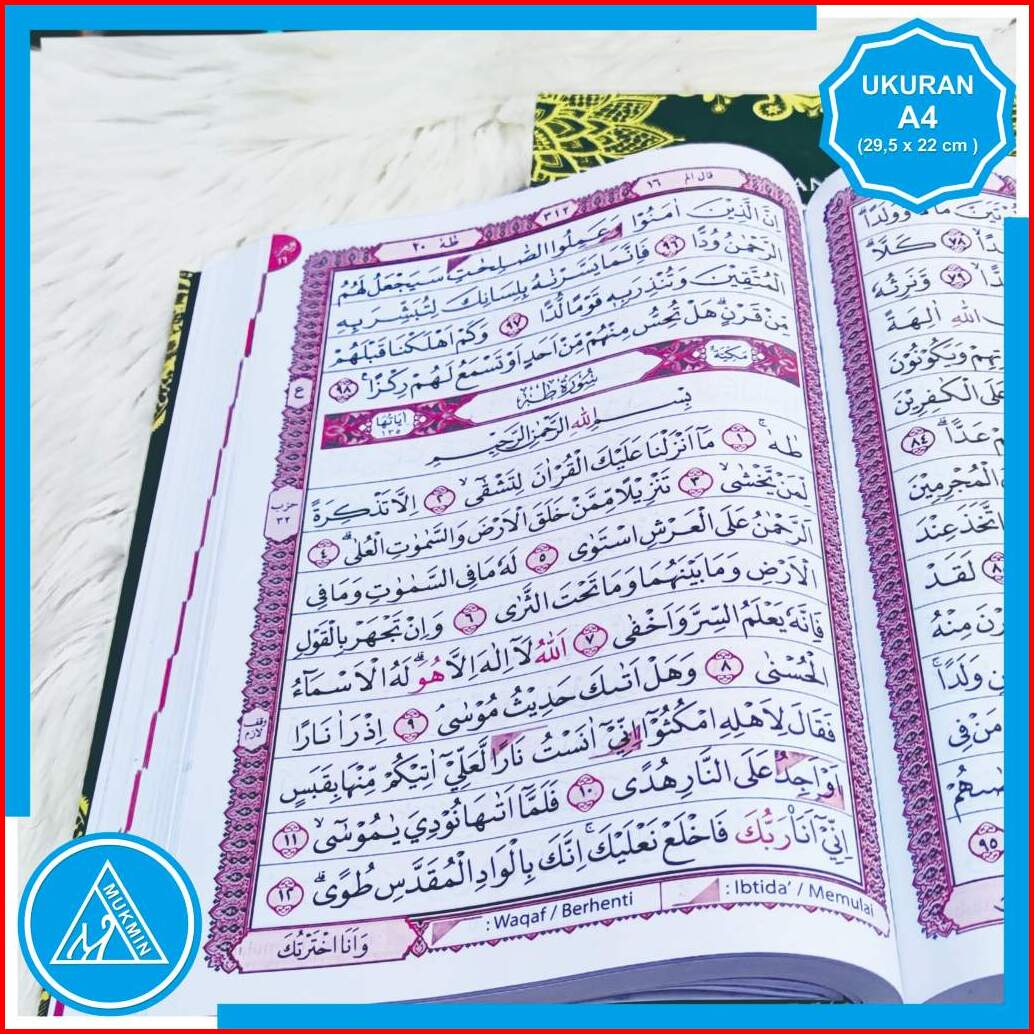 UKURAN
A4
(29,5 x 22 cm )
قال الم ١٦
٣١٢
طه ٢٠
اِنَّ الَّذِيْنَ اٰمَنُوْا وَعَمِلُوا الصّٰلِحٰتِ سَيَجْعَلُ لَهُمُ
الرَّحْمٰنُ وُدًّا ٩٦ فَاِنَّمَا يَسَّرْنٰهُ بِلِسَانِكَ لِتُبَشِّرَ بِهِ
الْمُتَّقِيْنَ وَتُنْذِرَ بِهٖ قَوْمًا لُّدًّا ٩٧ وَكَمْ اَهْلَكْنَا قَبْلَهُمْ
مِّنْ قَرْنٍۗ هَلْ تُحِسُّ مِنْهُمْ مِّنْ اَحَدٍ اَوْ تَسْمَعُ لَهُمْ رِكْزًا ٩٨
مَكِّيَّةٌ
سُوْرَةُ طٰهٰ
اٰيَاتُهَا ١٣٥
بِسْمِ اللّٰهِ الرَّحْمٰنِ الرَّحِيْمِ
طٰهٰ ۚ ١ مَآ اَنْزَلْنَا عَلَيْكَ الْقُرْاٰنَ لِتَشْقٰٓى ۙ ٢ اِلَّا تَذْكِرَةً
لِّمَنْ يَّخْشٰى ۙ ٣ تَنْزِيْلًا مِّمَّنْ خَلَقَ الْاَرْضَ وَالسَّمٰوٰتِ الْعُلٰى ۗ ٤
اَلرَّحْمٰنُ عَلَى الْعَرْشِ اسْتَوٰى ٥ لَهٗ مَا فِى السَّمٰوٰتِ وَمَا فِى
الْاَرْضِ وَمَا بَيْنَهُمَا وَمَا تَحْتَ الثَّرٰى ٦ وَاِنْ تَجْهَرْ بِالْقَوْلِ
فَاِنَّهٗ يَعْلَمُ السِّرَّ وَاَخْفٰى ٧ اَللّٰهُ لَآ اِلٰهَ اِلَّا هُوَۗ لَهُ الْاَسْمَاۤءُ
الْحُسْنٰى ٨ وَهَلْ اَتٰىكَ حَدِيْثُ مُوْسٰى ۘ ٩ اِذْ رَاٰ نَارًا
فَقَالَ لِاَهْلِهِ امْكُثُوْٓا اِنِّيْٓ اٰنَسْتُ نَارًا لَّعَلِّيْٓ اٰتِيْكُمْ مِّنْهَا بِقَبَسٍ
اَوْ اَجِدُ عَلَى النَّارِ هُدًى ١٠ فَلَمَّآ اَتٰىهَا نُوْدِيَ يٰمُوْسٰٓى ۙ ١١
اِنِّيْٓ اَنَا۠ رَبُّكَ فَاخْلَعْ نَعْلَيْكَۚ اِنَّكَ بِالْوَادِ الْمُقَدَّسِ طُوًى ۗ ١٢
: Waqaf / Berhenti
: Ibtida' / Memulai
وَاَنَا اخْتَرْتُكَ
ع
حزب
٣٢
وقف لازم
MUKMIN